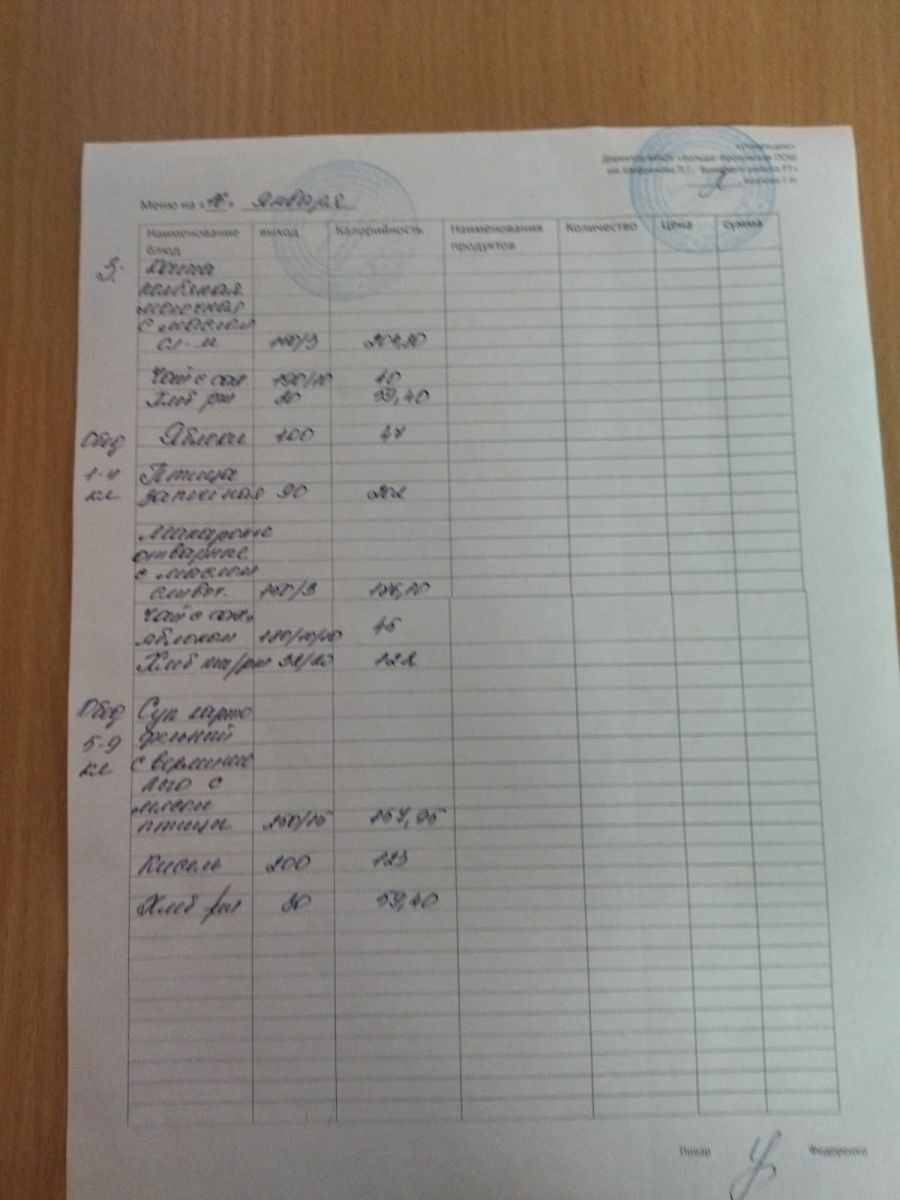 «Утверждаю»
Директор МБОУ «Больше-Фроловская ООШ
Меню на « » января
Наименование блюд выход Калорийность Наименования продуктов Количество Цена сумма
З. Каша
молочная
с маслом
сл.м
Чай с сах 190/10 40
Хлеб рж 30 59,40
Обед Яблоки 100 47
1-4 Птица
кл запечёная 90 202
Макароны
отварные
с маслом
сливоч. 150/3
Чай с сах,
яблоком 180/10/20 45
Хлеб пш/рж 32/20 122
Обед Суп карто
5-9 фельный
кл с вермишел
лью с
мясом
птицы 250/15 157,95
Кисель 200 123
Хлеб рж 30 59,40
Повар Федоренко